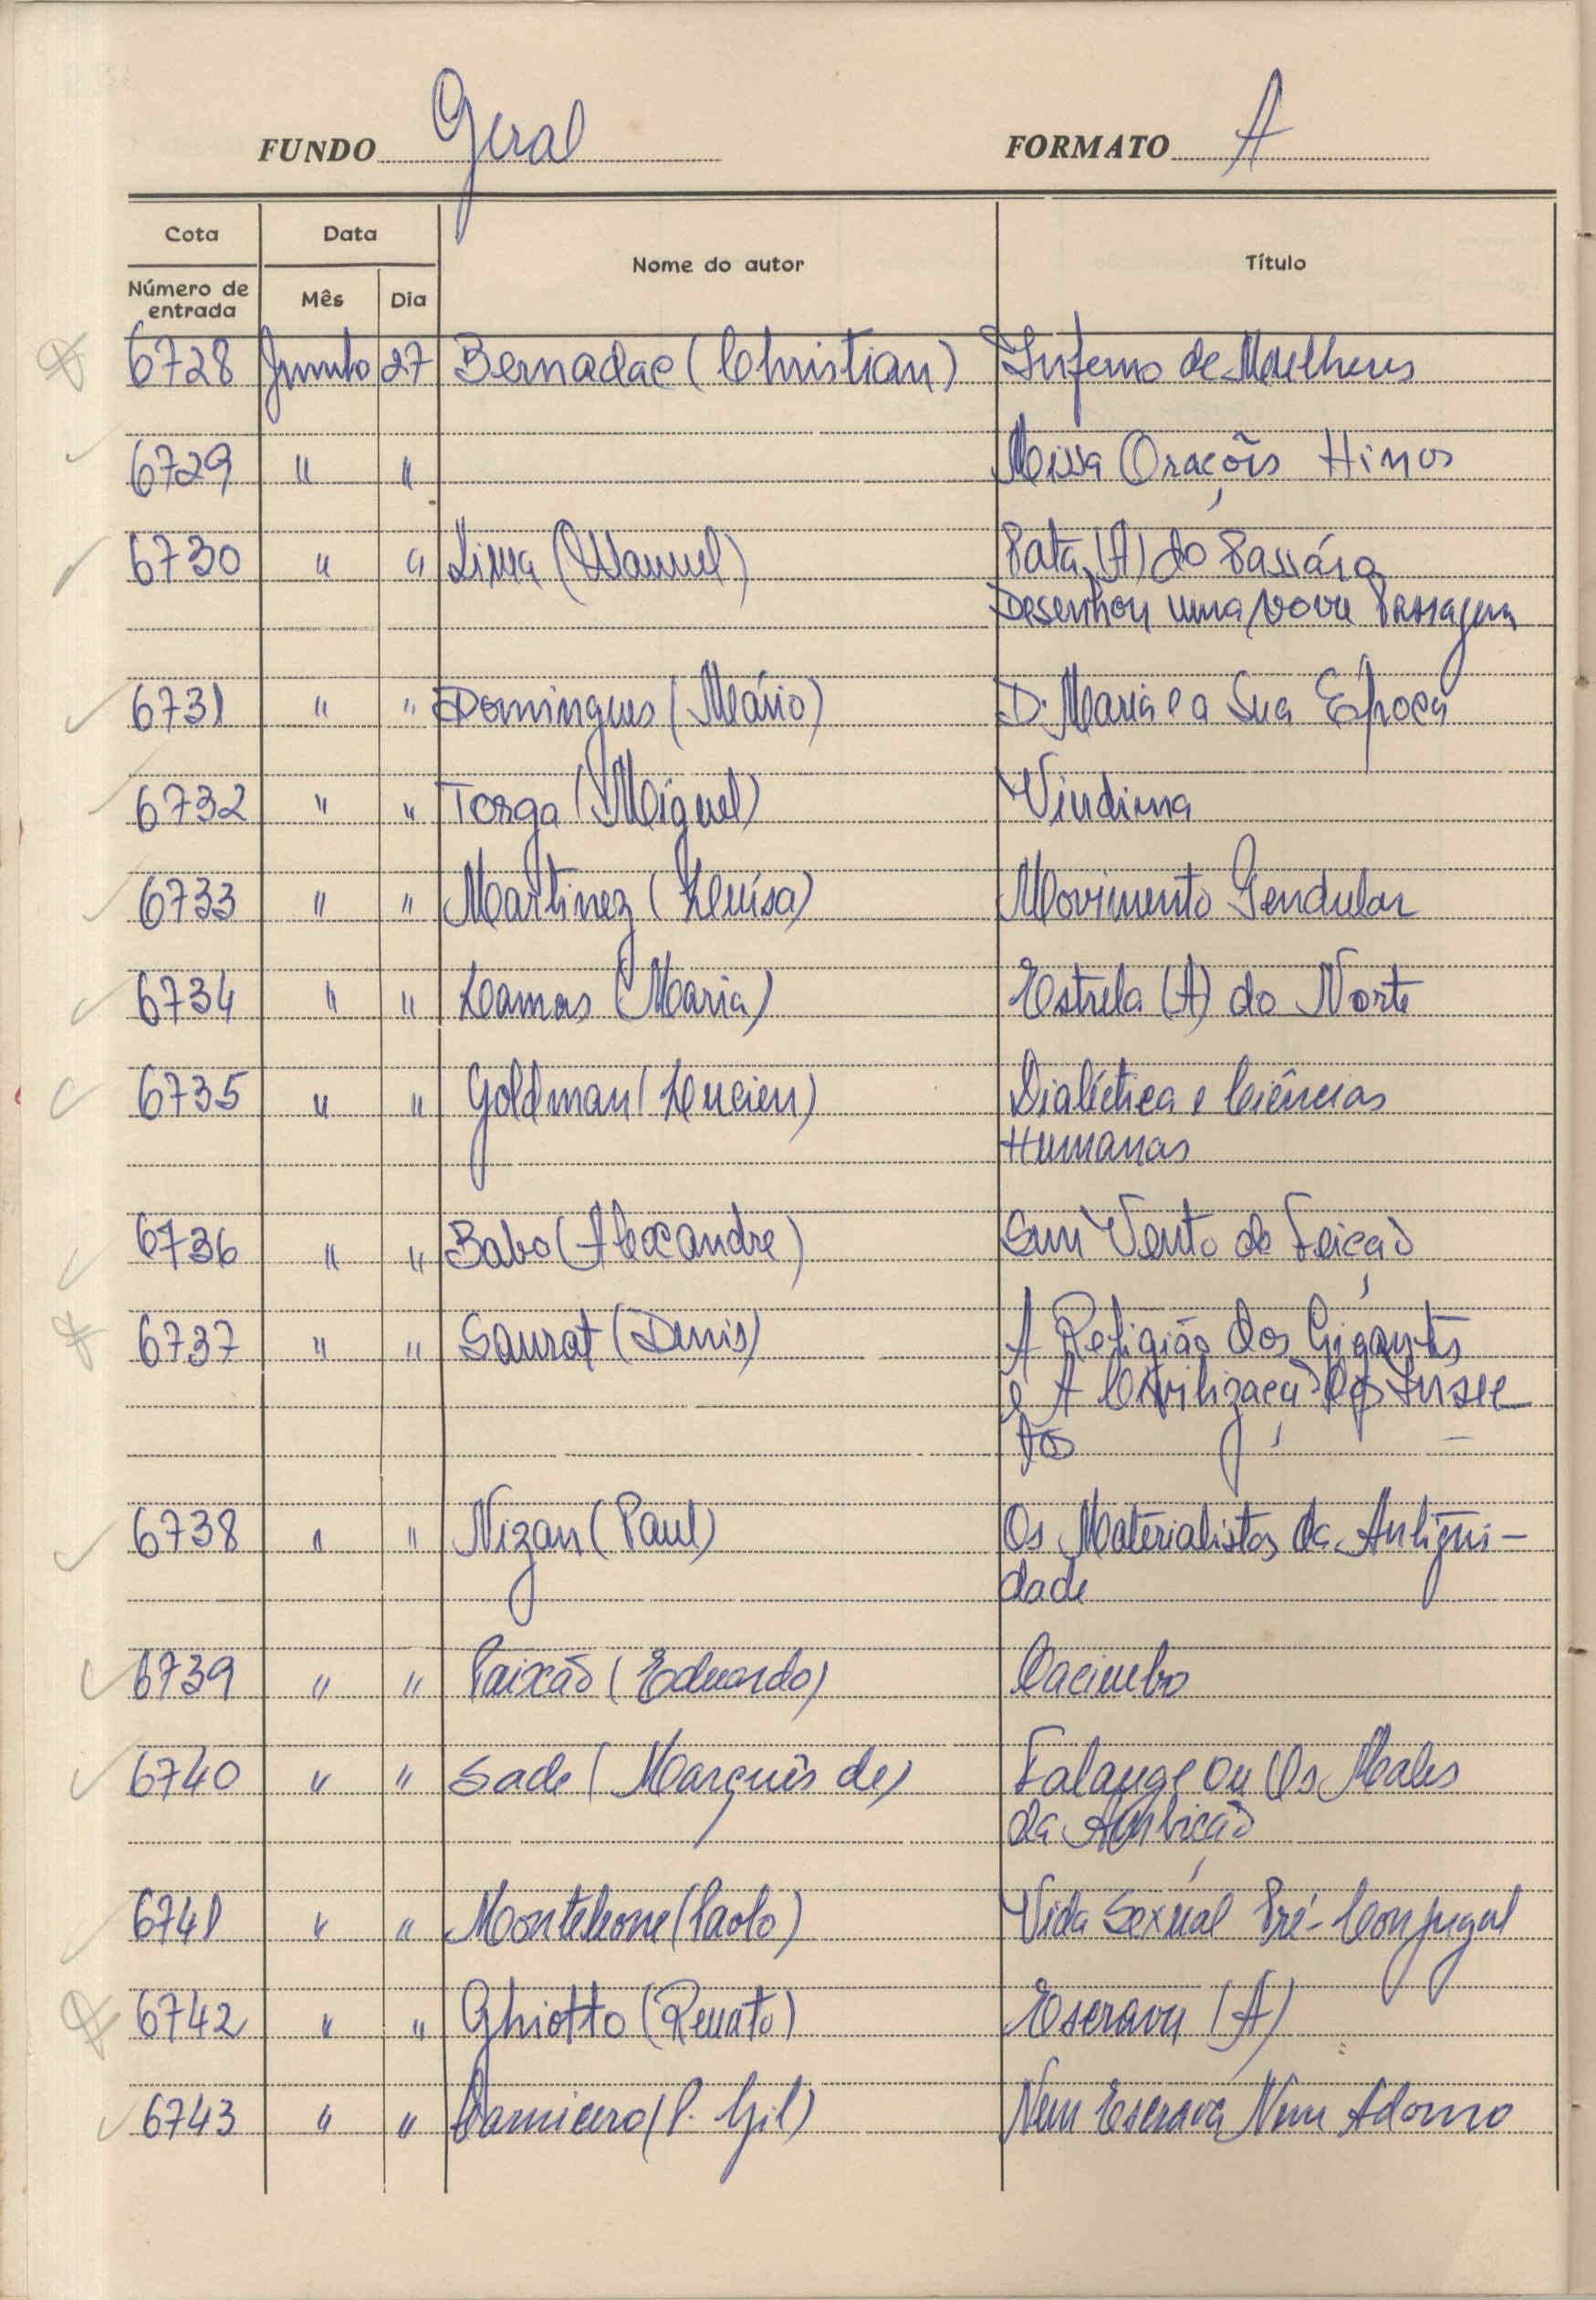 FUNDO Geral FORMATO A
Cota Data Nome do autor Título
Número de entrada Mês Dia
6728 Junho 27 Bernadac (Christian) Inferno de Mulheres
6729 " " Missa Orações Hinos
6730 " " Lima (Manuel) Pata (A) do Passáro
Desenhou uma nova Passagem
6731 " " Domingues (Mário) D. Maria e a Sua Época
6732 " " Torga (Miguel) Vindima
6733 " " Martinez (Luísa) Movimento Pendular
6734 " " Lamas (Maria) Estrela (A) do Norte
6735 " " Goldman (Lucien) Dialéctica e Ciências
Humanas
6736 " " Babo (Alexandre) Sem Vento de Feição
6737 " " Saurat (Denis) A Religião dos Gigantes
e A Civilização dos Insec
tos
6738 " " Nizan (Paul) Os Materialistas da Antigui-
dade
6739 " " Paixão (Eduardo) Cacimbo
6740 " " Sade (Marquês de) Falange ou Os Males
da Ambição
6741 " " Monteleone (Paolo) Vida Sexual Pré-Conjugal
6742 " " Ghiotto (Renato) Escrava (A)
6743 " " (P. Gil) Nem Escrava Nem Adorno